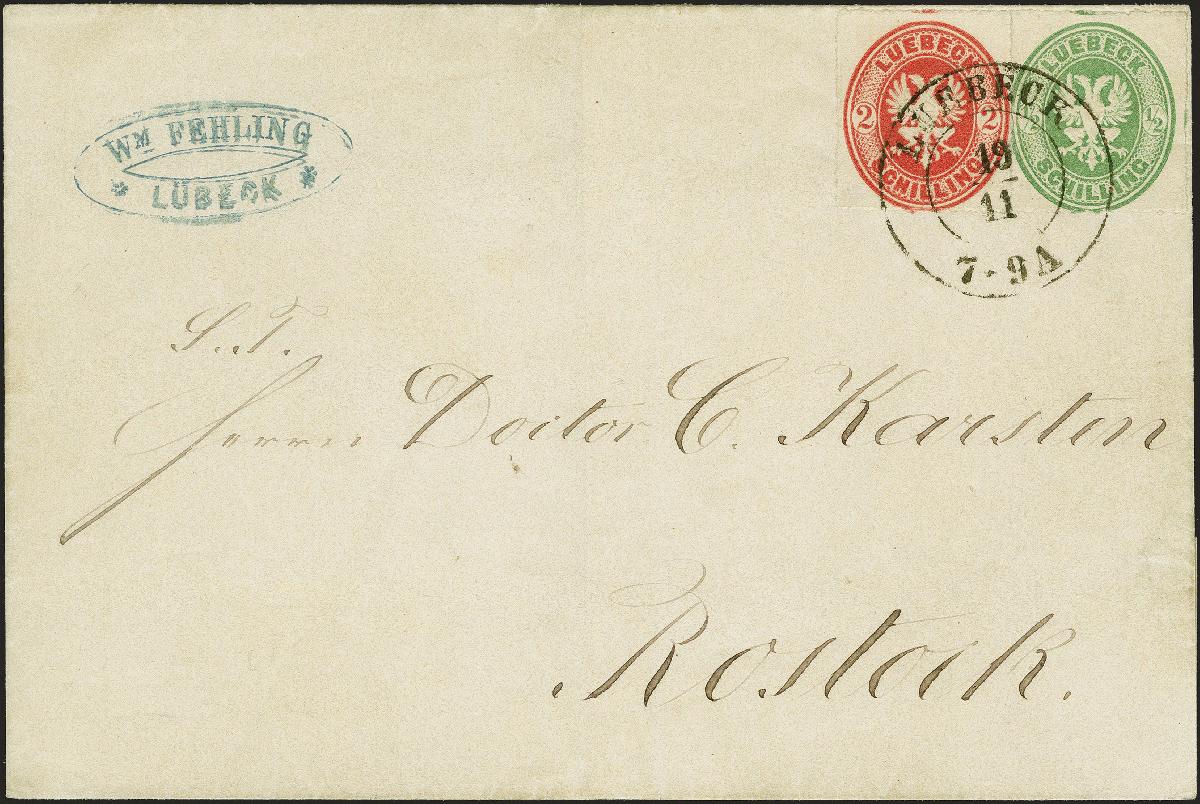 WM FEHLING
LÜBECK
LUEBECK
2 2
SCHILLING
LUEBECK
1/2 1/2
SCHILLING
LUEBECK
19
11
7-9A
S.T.
Herrn Doctor C. Karsten
Rostock.